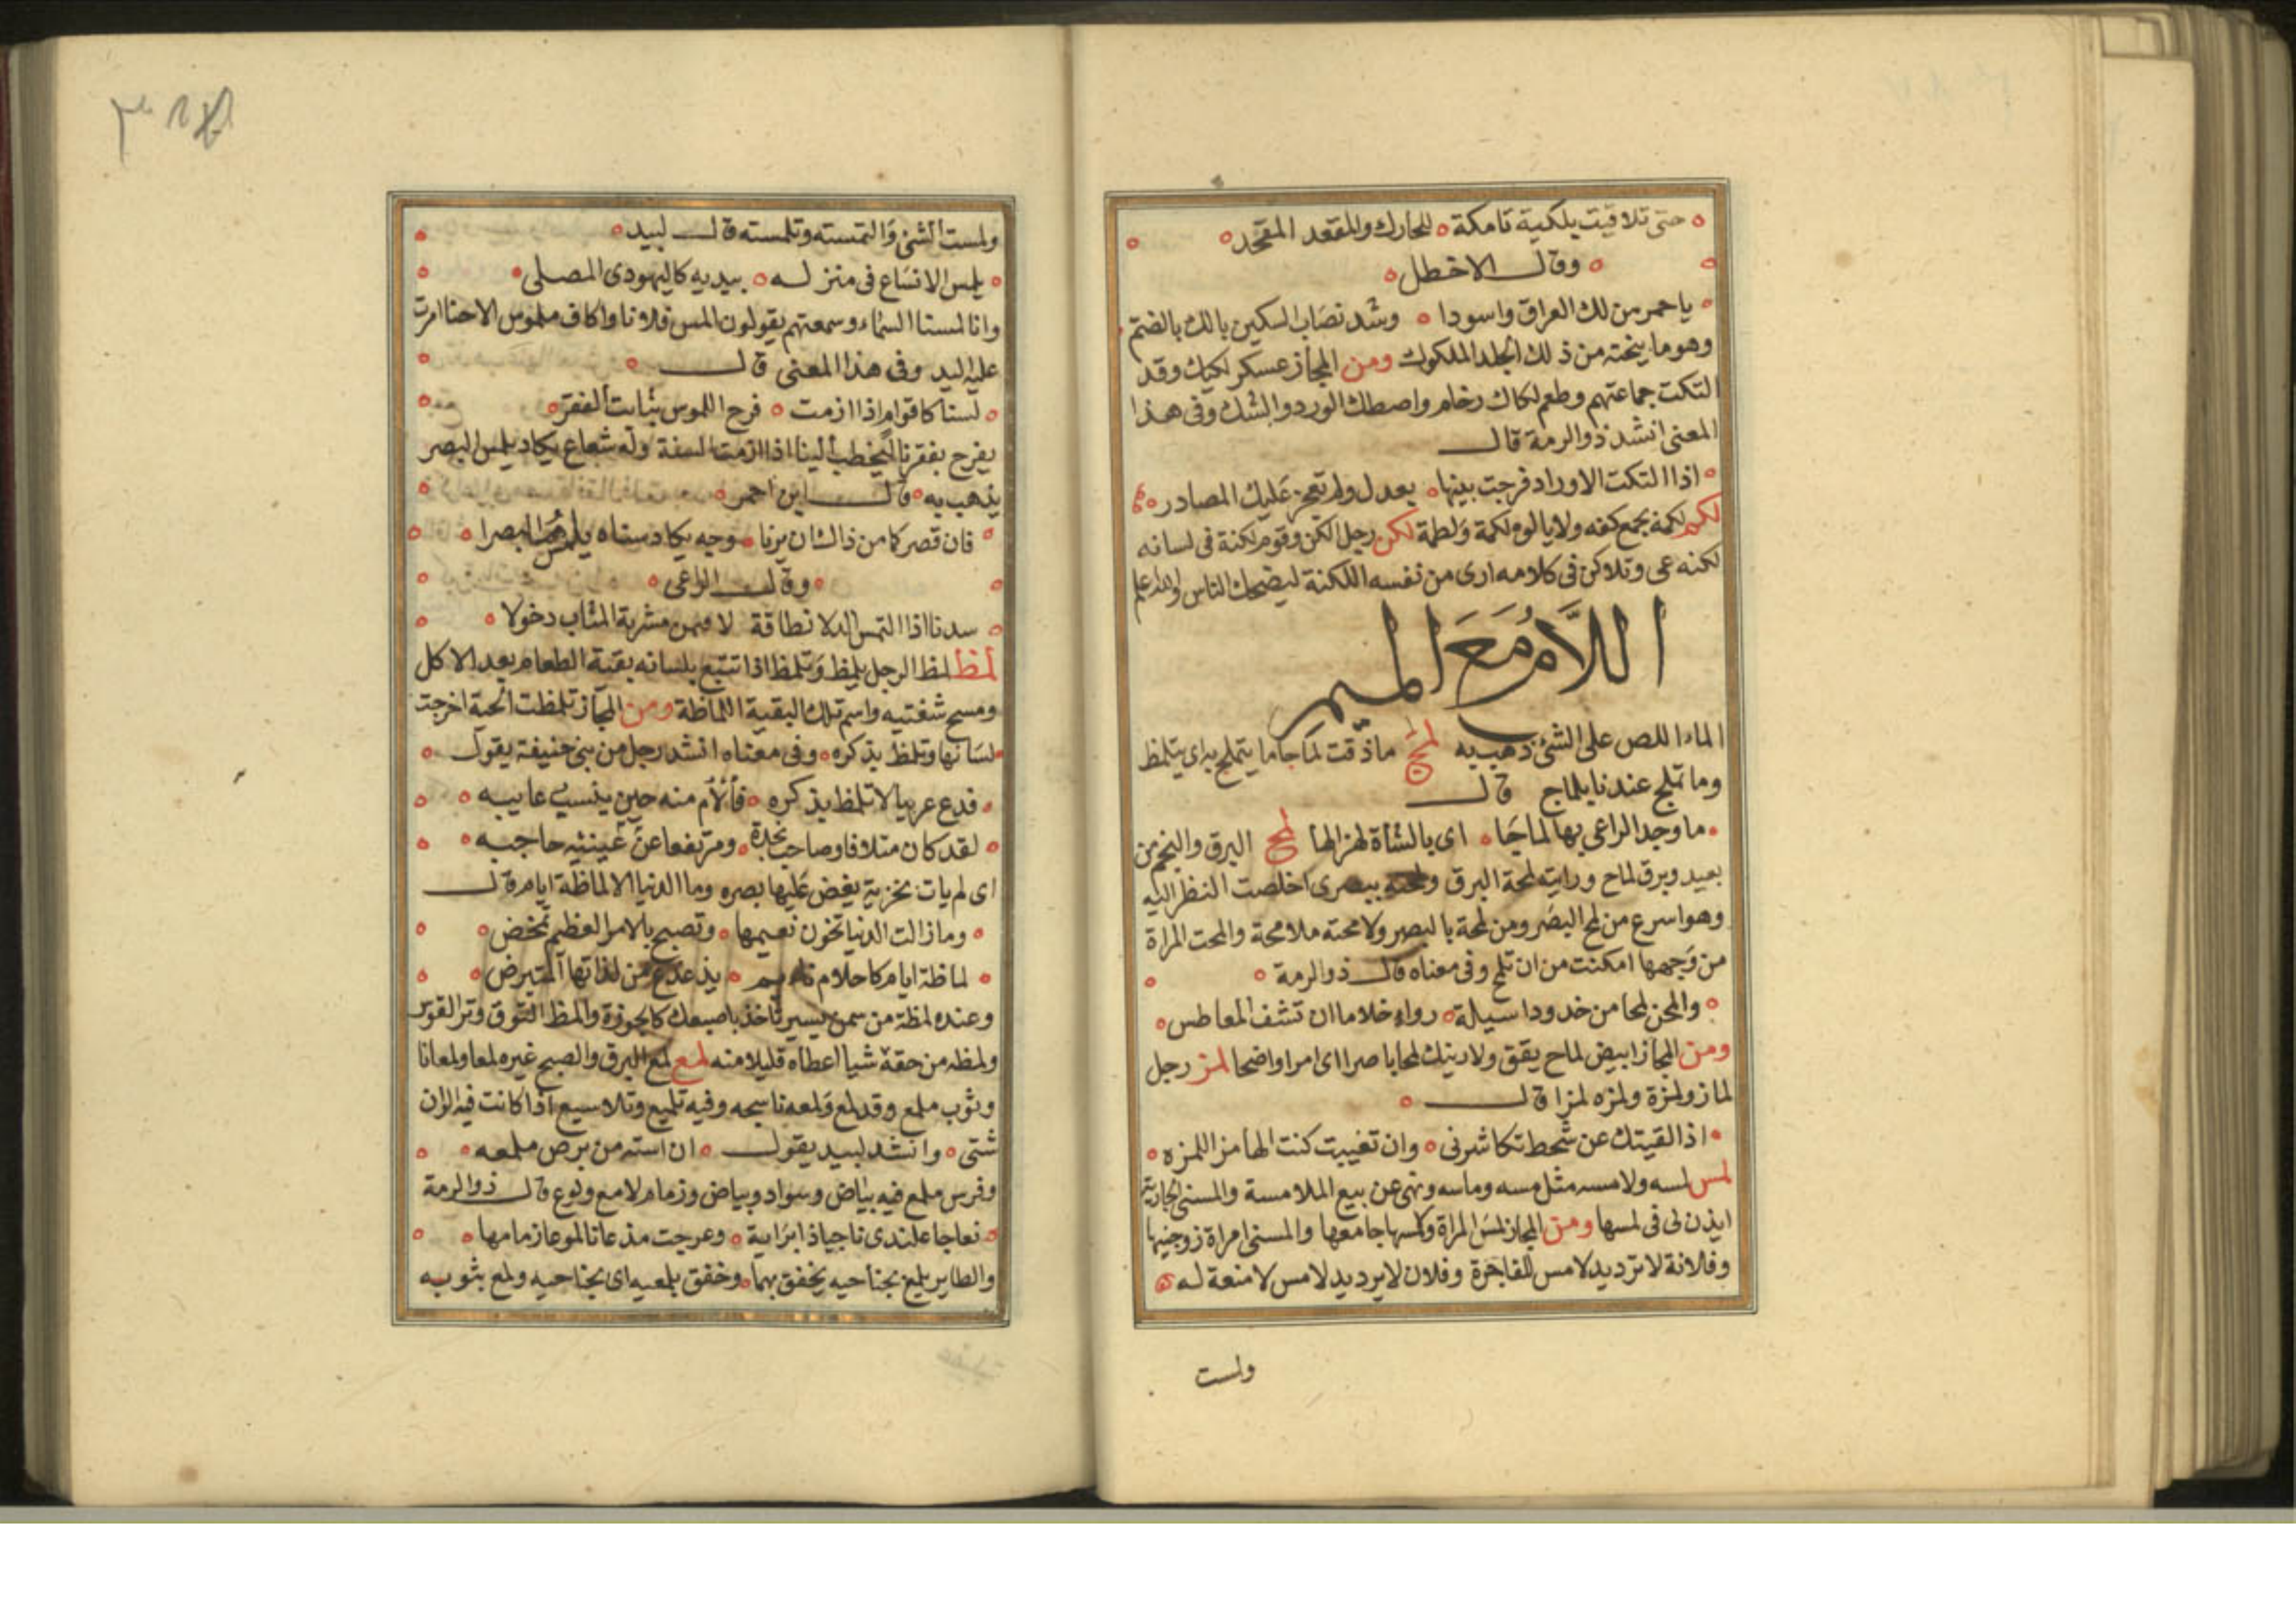 حتى تلاقيت بلكية تامكة للحارك والمقعد المقحد
وقال الاخطل
يا حمر من لك العراق واسودا وشد نصاب السكين باللك بالضم
وهو ما ينحته من ذلك الجلد الملكوك ومن المجاز عسكر لكيك وقد
التكت جماعتهم وطعم لكاك رخام واصطك الورد والشك وفى هذا
المعنى انشد ذو الرمة قال
اذا التكت الاوراد فرجت بينها بعدل ولم تعجز عليك المصادر
لكم لكمه بجمع كفه ولا يالوه لكمة ولطمة لكن رجل الكن وقوم لكنة فى لسانه
لكنه عى وتلاكن فى كلامه ارى من نفسه اللكنة ليضحك الناس والله اعلم
اللام مع الميم
الماء اللص على الشئ ذهب به لمج ما ذقت لماجا ما يتملج به اى يتلمظ
وما تملج عندنا بلماج قال
ما وجد الراعى بها لماجا اى بالشأة لهزالها لمح البرق والنجم من
بعيد وبرق لماح ورايته لمحة البرق ولمحته ببصرى اخلصت النظر اليه
وهو اسرع من لمح البصر ومن لمحة بالبصر ولامحته ملامحة والمحت المراة
من وجهها امكنت من ان تلمح وفى معناه قال ذو الرمة
والمحن لمحا من خدود اسيلة رواء خلا ما ان تشف المعاطس
ومن المجاز ابيض لماح يقق ولارينك لمحا باصرا اى امرا واضحا لمز رجل
لماز ولمزة ولمزه لمزا قال
اذا لقيتك عن شحط تكاشرنى وان تغيبت كنت الهامز اللمزه
لمس لمسه ولامسه مثل مسه وماسه ونهى عن بيع الملامسة والمسنى الجارية
ايذن لى فى لمسها ومن المجاز لمس المراة ولامسها جامعها والمسنى امراة زوجنيها
وفلانة لا ترد يد لامس للفاجرة وفلان لا يرد يد لامس لا منعة له
ولمست
ولمست الشئ والتمسته وتلمسته قال لبيد
يلمس الاحلاس فى منزله بيديه كاليهودى المصلى
وانا لمسنا السماء وسمعتهم يقولون المس فلانا واكاف ملموس الاحنا امرت
عليه اليد وفى هذا المعنى قال
لسنا كاقوام اذا ازمت فرح اللموس بثابت الفقر
يفرح بفقرنا ليخطب الينا اذا ازمت السنة وله شعاع يكاد يلمس البصر
يذهب به قال ابن احمر
فان قصركما من ذاك ان يرنا وجه يكاد سناه يلمس البصرا
وقال الراعى
سدنا اذا التمس الدلا نطاقة لا مشربة المثاب دخولا
لمظ لمظ الرجل يلمظ وتلمظ اذا تتبع بلسانه بقية الطعام بعد الاكل
ومسح شفتيه واسم تلك البقية اللماظة ومن المجاز تلمظت الحية اخرجت
لسانها وتلمظ بذكره وفى معناه انشد رجل من بنى حنيفة يقول
فدع عربيا لا تلمظ بذكره فألأم منه حين ينسب عايبه
لقد كان متلافا وصاحب نجدة ومرتفعا عن عينيه حاجبه
اى لم يات بخزية يغض عليها بصره وما الدنيا الا لماظة ايام قال
وما زالت الدنيا تخون نعيمها وتصبح بالامر العظيم تمخض
لماظة ايام كاحلام نائم يذعذع من لذاتها المتبرض
وعنده لمظة من سمن يسير تاخذ باصبعك كالجوزة والمظ القوق وتر القوس
ولمظه من حقه شيا اعطاه قليلا منه لمع لمع البرق والصبح غيره لمعا ولمعانا
وثوب ملمع وقد لمع ولمعه ناسجه وفيه تلميع وتلاميع اذا كانت فيه الوان
شتى وانشد لبيد يقول ان استه من برص ملمعه
وفرس ملمع فيه بياض وسواد وبياض وزمام لامع ولموع قال ذو الرمة
فعاجا علندى ناجيا ذا براية وعرجت مذعانا لموعا زمامها
والطاير يلمع بجناحيه يخفق بهما وخفق بلمعيه اى بجناحيه ولمع بثوبه